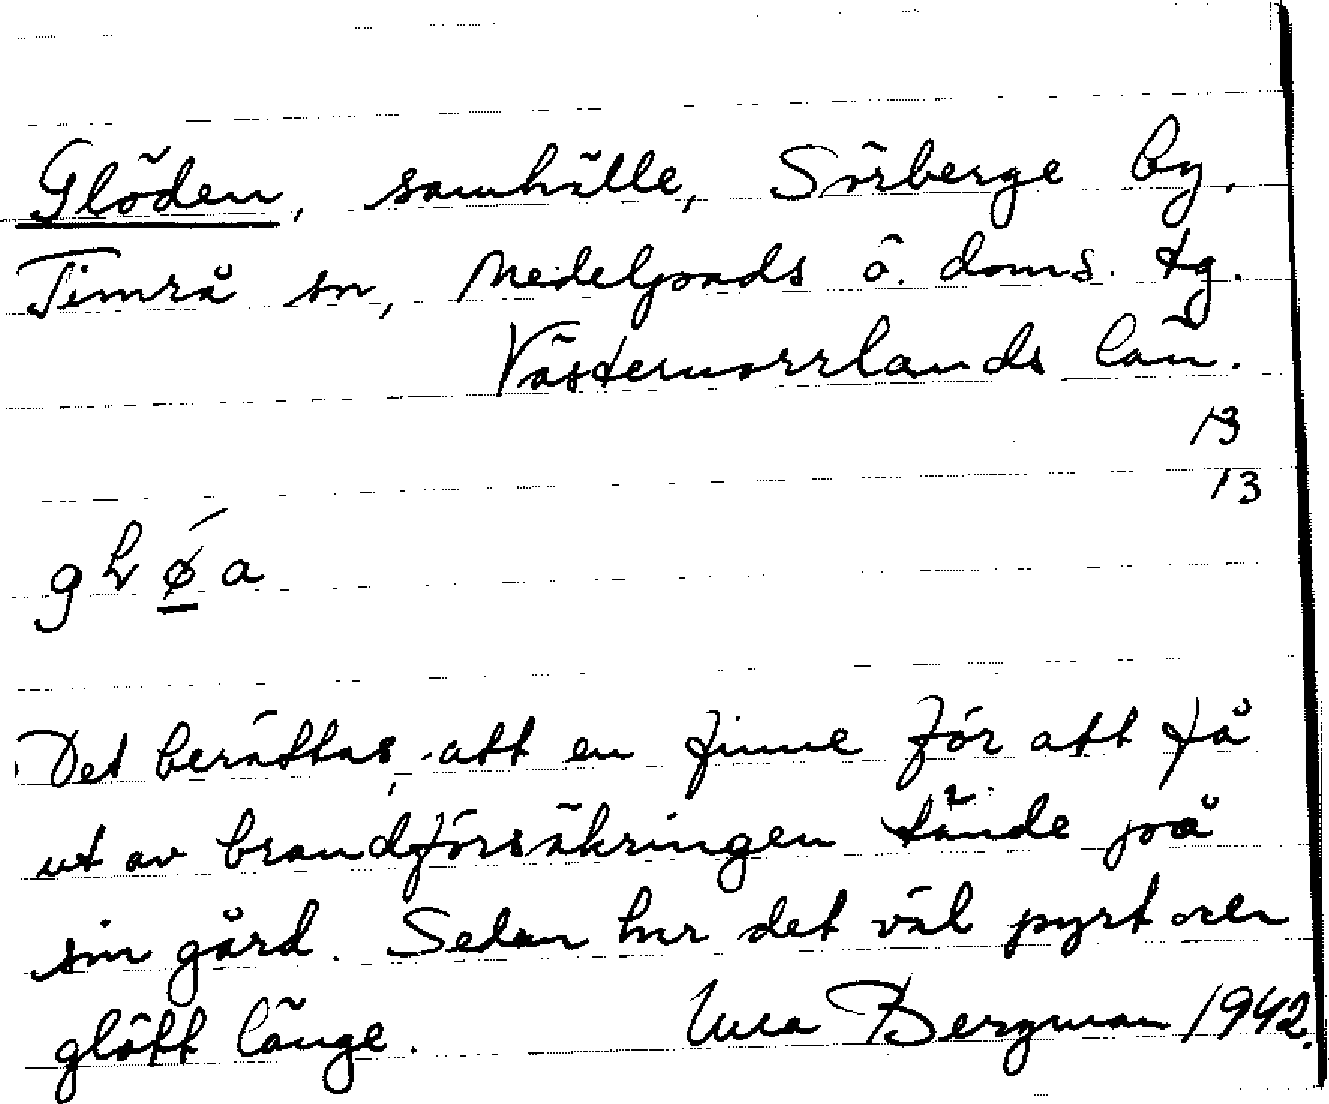 Glöden, samhälle, Sörberge by.
Timrå sn, Medelpads ö. doms. tg.
Västernorrlands län.
13
13
Det berättas, att en finne för att få
ut av brandförsäkringen tände på
sin gård. Sedan har det väl pyrt och
glött länge. Bergman 1942.